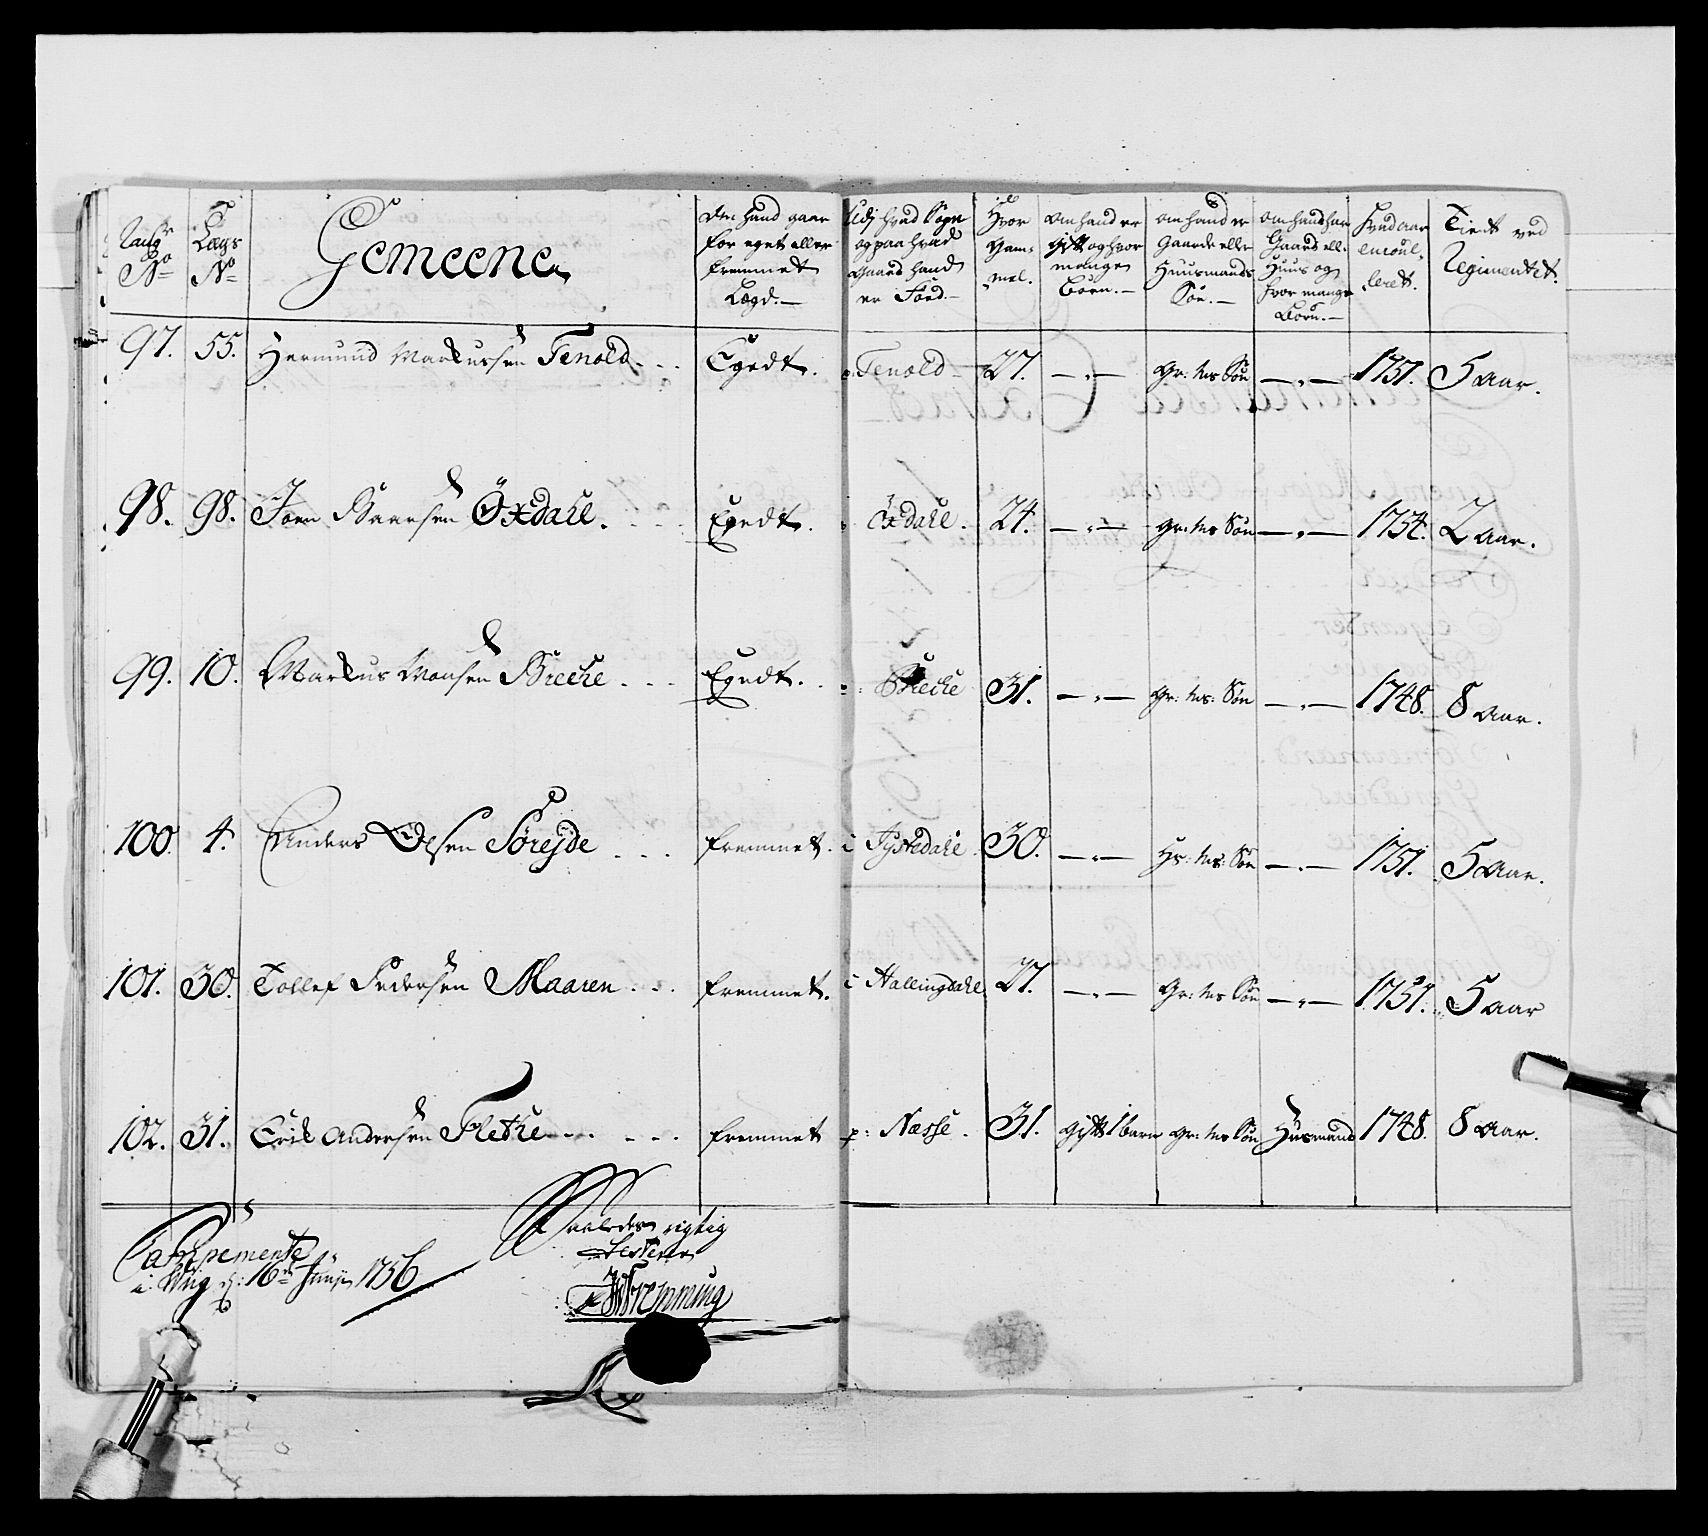 Rang No
Lægs No
Gemeene
Om hand gaar for eget eller fremmet Lægd.
Udj hvad Sogn og paa hvad Gaard hand er Fød.
Hvor Gammel.
Om hand er gift og hvor mange Børn.
Om hand er Gaarde eller Huusmands Søn.
Om hand har Gaard ell. Huus og hvor mange Børn.
Hvad aar enroulleret.
Tient ved Regimentet.
97. 55. Hermund Markussen Tenold Egedt. p: Tenold 27. —.— Gr: Ms Søn —.— 1751. 5 Aar.
98. 98. Joen Baarsen Öxdahl. Egedt. Öxdahl. 24. —.— Gr: Ms Søn —.— 1754. 2 Aar.
99. 10. Markus Monsen Brecke Egedt. Brecke 31. —.— Gr: Ms: Søn —.— 1748. 8 Aar.
100. 4. Anders Olsen Sørejde fremmet. i Jystedahl. 30. —.— Hs: Ms: Søn —.— 1751. 5 Aar.
101. 30. Tollef Pedersen Maaren fremmet. i Hallingdahl 27. —.— Gr: Ms Søn —.— 1751. 5 aar
102. 31. Erik Andersen Fletke fremmet p: Næsse. 31. Gift 1 barn Gr: Ms Søn Husmand 1748. 8 Aar.
Campemente
i Wiig d: 16de Junij 1756
Saaledes rigtig